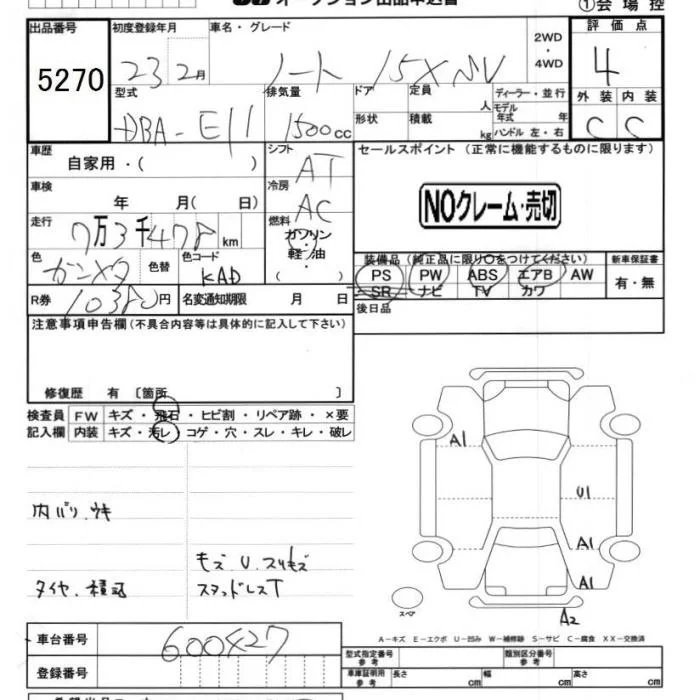 ①会場控
出品番号 初度登録年月 車名・グレード 評価点
5270 23 2月 ノート 15X SV 2WD・4WD 4
型式 排気量 ドア 定員 人 ディーラー・並行 外装 内装
DBA-E11 1500cc 形状 積載 kg モデル年式 年 ハンドル 左・右 C C
車歴 シフト セールスポイント (正常に機能するものに限ります)
自家用・( ) AT
車検 冷房
年 月( 日) AC NOクレーム・売切
走行 燃料
7万3千478km ガソリン・軽油・
色 色替 色コード 装備品(純正品に限り○をつけてください) 新車保証書
ガンメタ KAD PS PW ABS エアB AW 有・無
SR ナビ TV カワ
R券 10380円 名変通知期限 月 日 後日品
注意事項申告欄(不具合内容等は具体的に記入して下さい)
修復歴 有 〔箇所 〕
検査員 FW キズ・飛石・ヒビ割・リペア跡・×要
記入欄 内装 キズ・汚レ・コゲ・穴・スレ・キレ・破レ
A1
U1
内バリ.ウキ
A1
キズ.U.スリキズ
タイヤ.積込 スタッドレスT
A1
スペア
A2
A-キズ E-エクボ U-凹み W-補修跡 S-サビ C-腐食 XX-交換済
車台番号 600427
型式指定番号 参考 類別区分番号 参考
登録番号 車庫証明用 参考 長さ cm 幅 cm 高さ cm